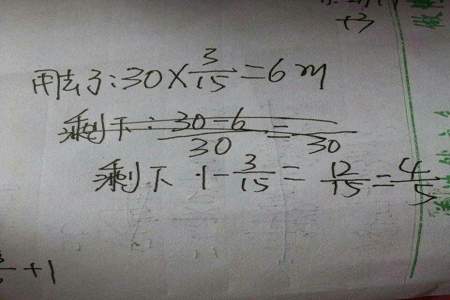 +3
用去了:30×3/15=6m
剩下:30-6/30=/30
剩下 1-3/15=12/15=4/5
+1